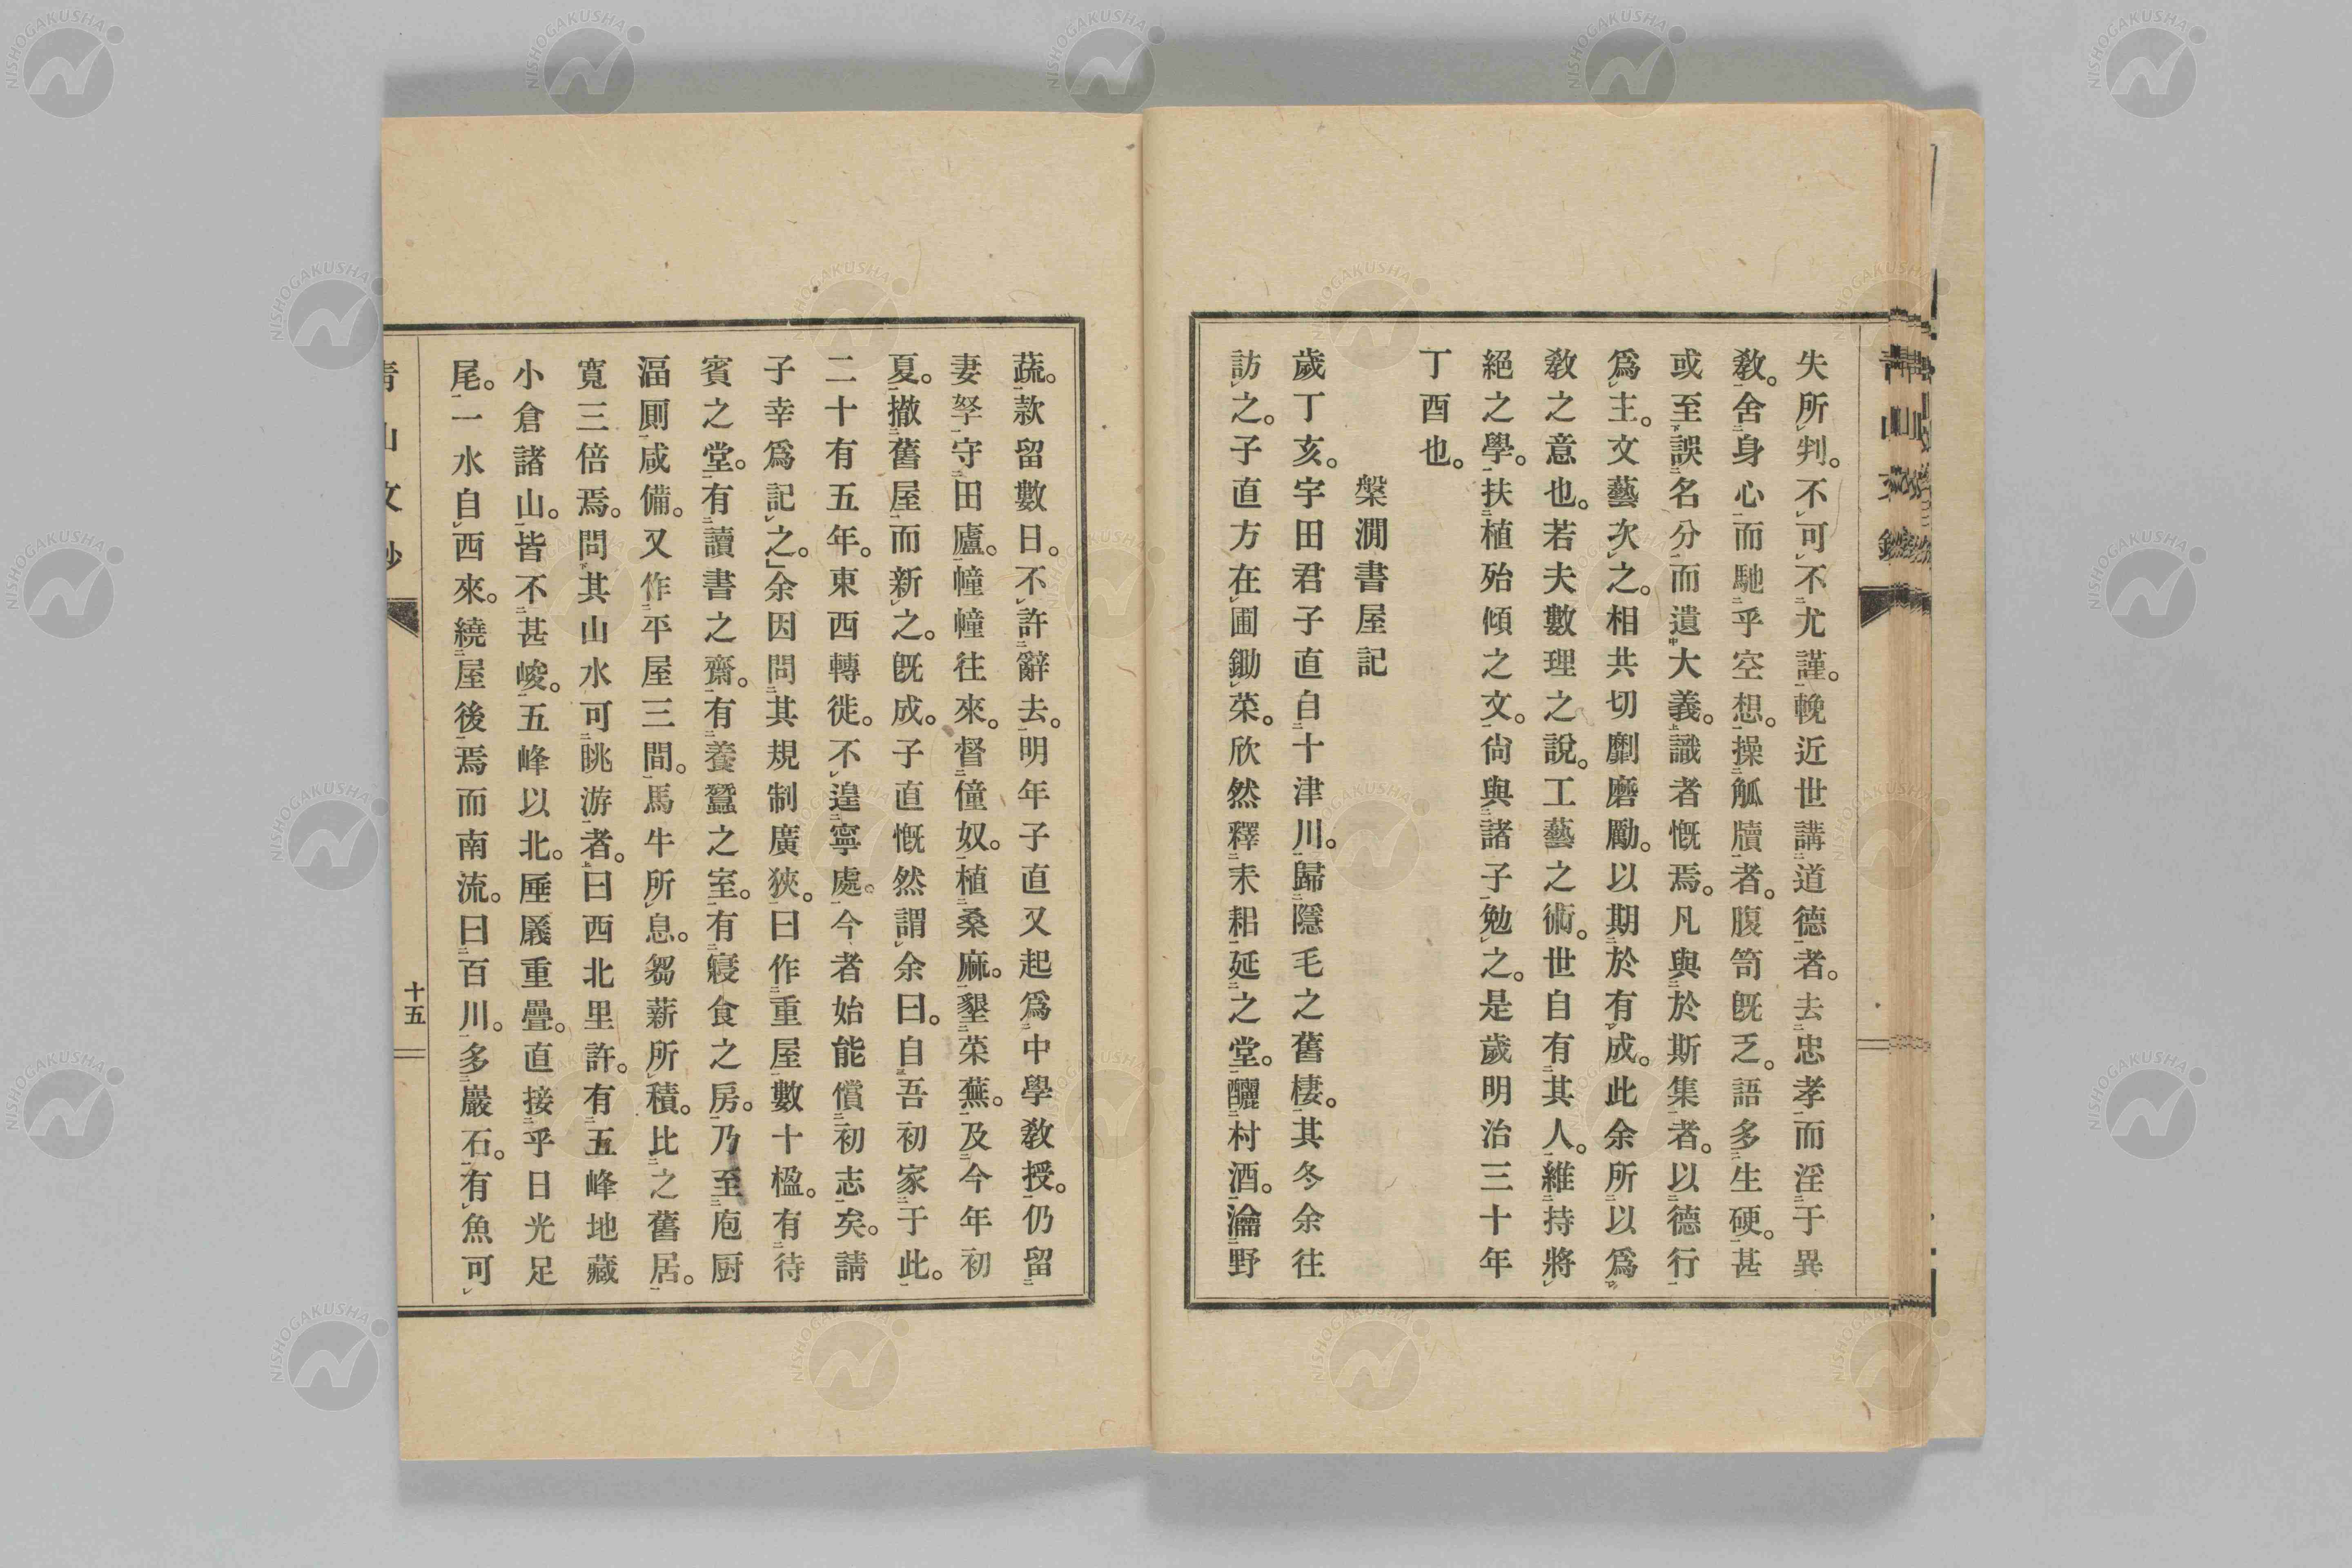 失所判。不可不尤謹。輓近世講道德者。去忠孝而淫于異
敎。舍身心而馳乎空想。操觚牘者。腹笥既乏。語多生硬。甚
或至誤名分而遺大義。識者慨焉。凡與於斯集者。以德行
爲主。文藝次之。相共切劘磨勵。以期於有成。此余所以爲
敎之意也。若夫數理之說。工藝之術。世自有其人。維持將
絕之學。扶植殆傾之文。尙與諸子勉之。是歲明治三十年
丁酉也。
槃澗書屋記
歲丁亥。宇田君子直自十津川。歸隱毛之舊棲。其冬余往
訪之。子直方在圃鋤菜。欣然釋耒耜延之堂。釃村酒。瀹野
蔬。款留數日。不許辭去。明年子直又起爲中學敎授。仍留
妻孥守田廬。幢幢往來。督僮奴。植桑麻。墾菜蕪。及今年初
夏。撤舊屋而新之。既成。子直慨然謂余曰。自吾初家于此。
二十有五年。東西轉徙。不遑寧處。今者始能償初志矣。請
子幸爲記之。」余因問其規制廣狹。曰作重屋數十楹。有待
賓之堂。有讀書之齋。有養蠶之室。有寢食之房。乃至庖厨
湢厠咸備。又作平屋三間。馬牛所息。芻薪所積。比之舊居。
寬三倍焉。問其山水可眺游者。曰西北里許。有五峰地藏
小倉諸山。皆不甚峻。五峰以北。厜㕒重疊。直接乎日光足
尾。一水自西來。繞屋後焉而南流。曰百川。多巖石。有魚可
青山文鈔
十五
NISHOGAKUSHA